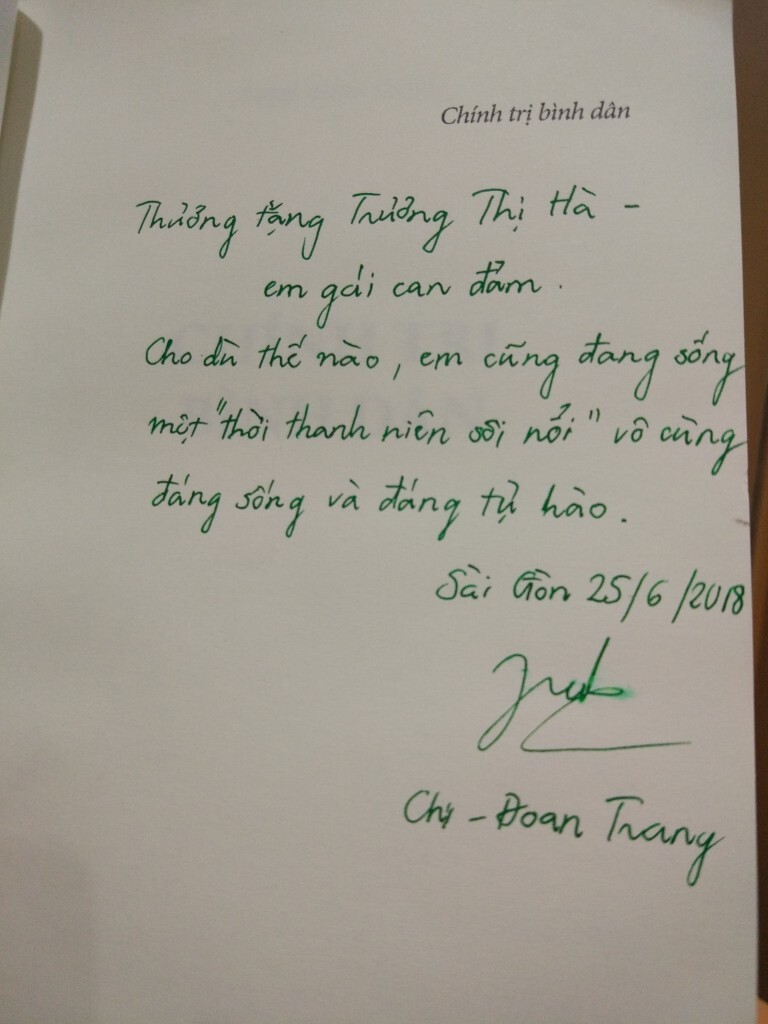 Chính trị bình dân
Thương tặng Trương Thị Hà -
em gái can đảm.
Cho dù thế nào, em cũng đang sống
một "thời thanh niên sôi nổi" vô cùng
đáng sống và đáng tự hào.
Sài Gòn 25/6/2018
Chị - Đoan Trang